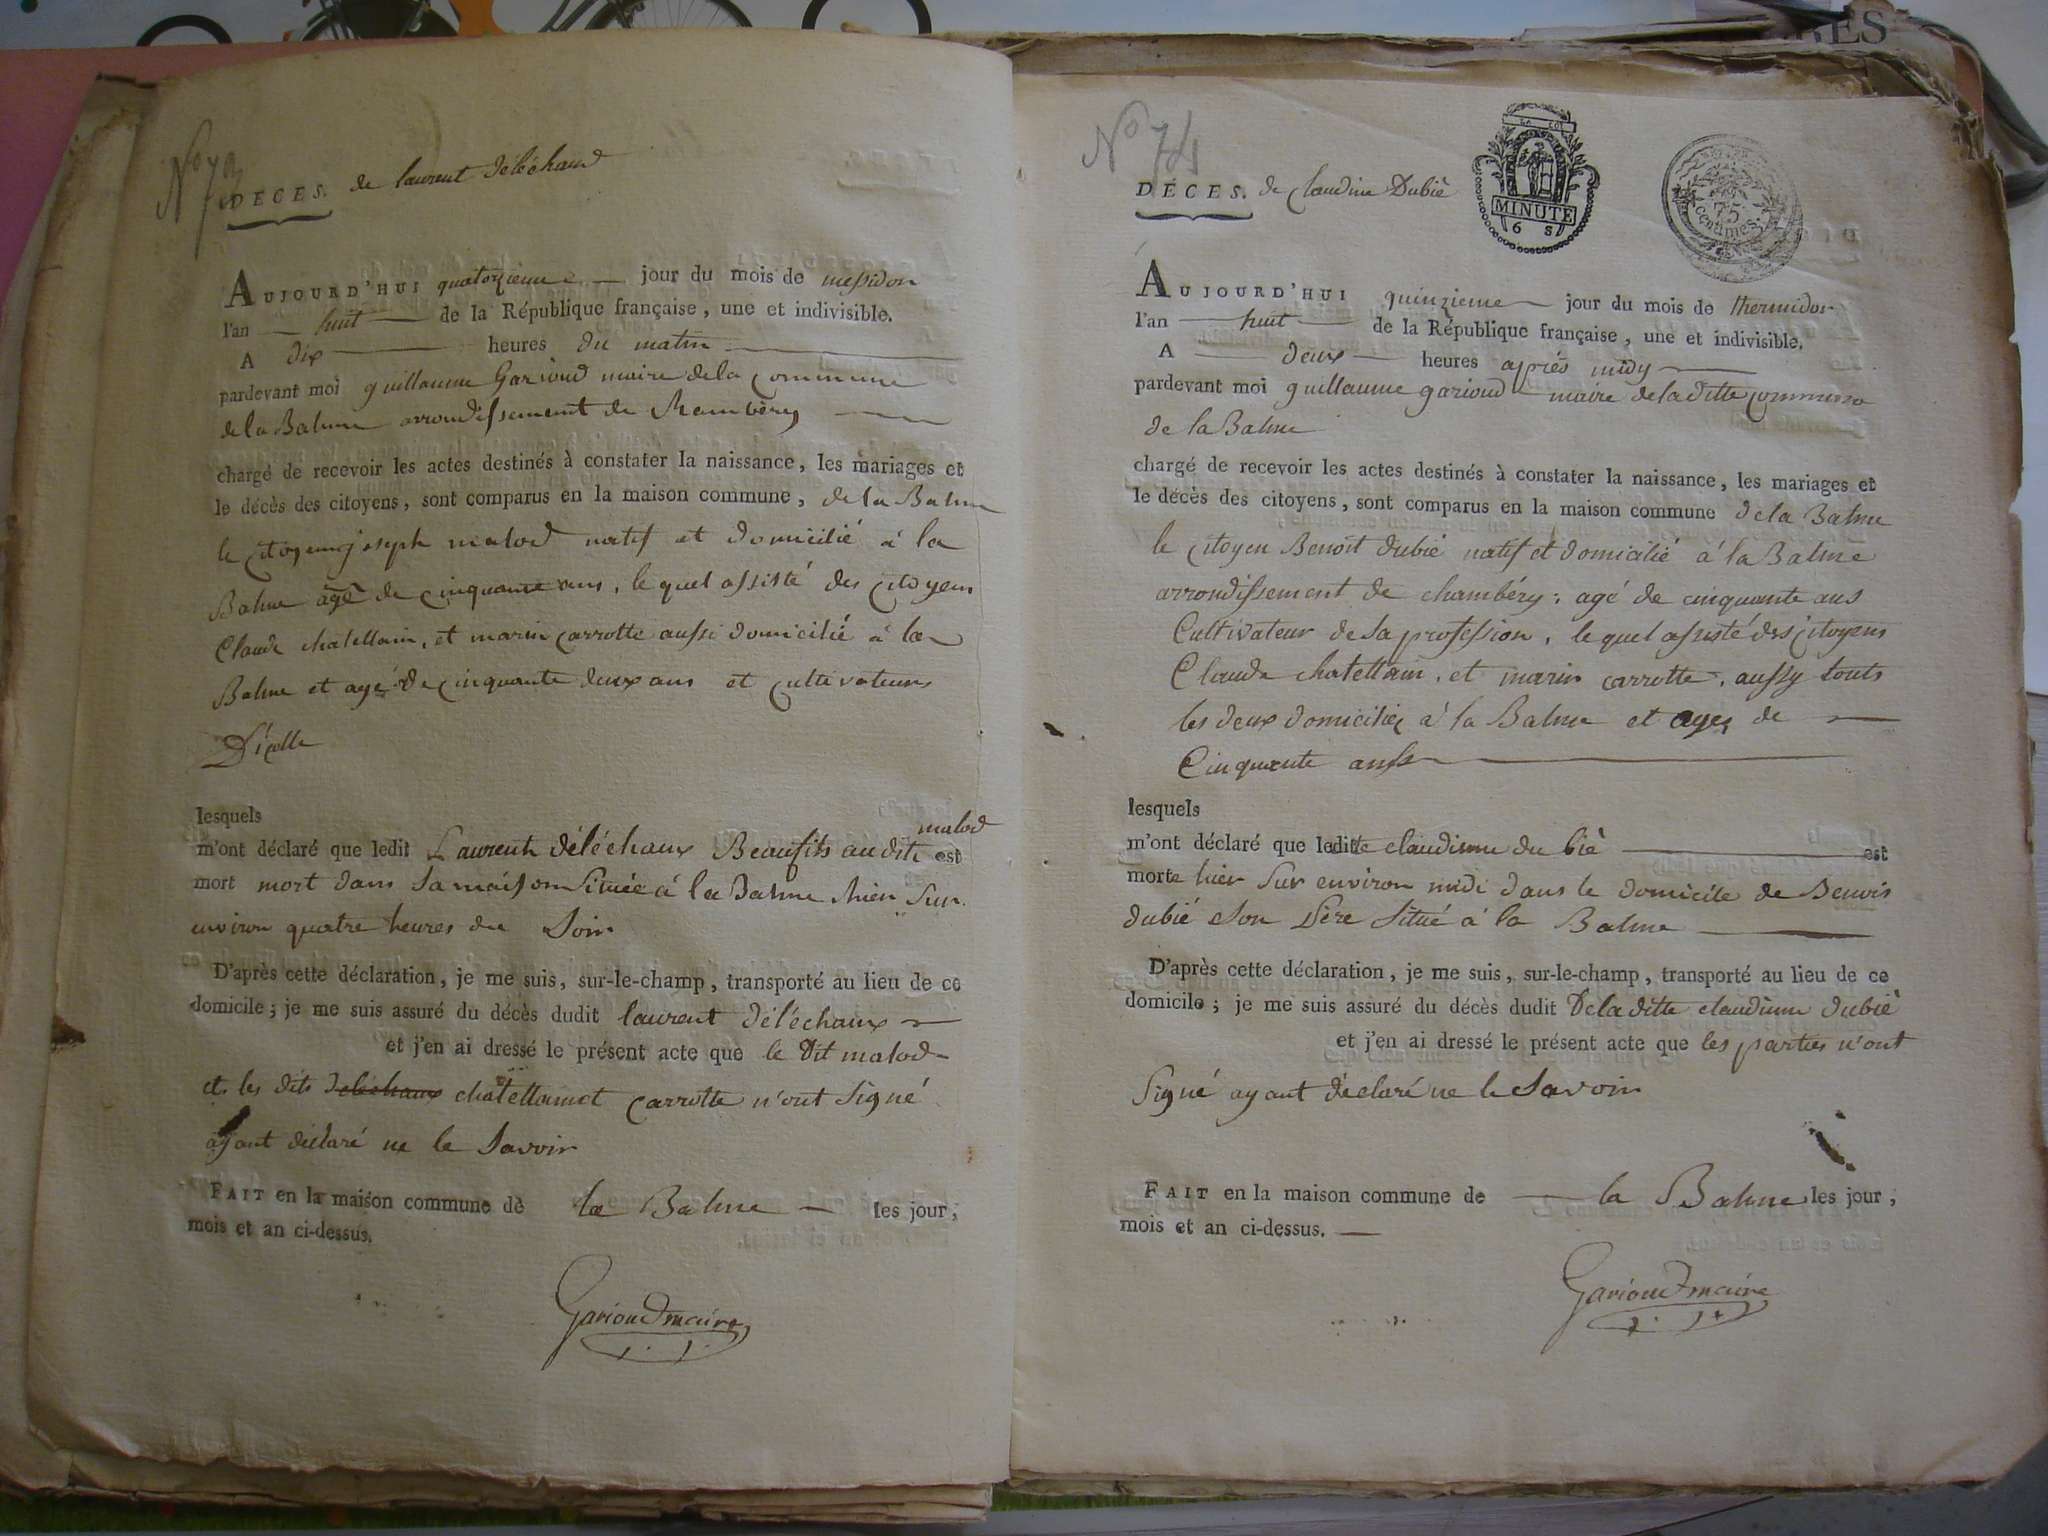 RES
No 73
DÉCES. de laurent déléchaud
AUJOURD'HUI quatorzieme jour du mois de messidor
l'an huit de la République française, une et indivisible.
A dix heures du matin
pardevant moi guillaume Garioud maire dela commune
de la Balme arrondissement de Chambéry
chargé de recevoir les actes destinés à constater la naissance, les mariages et
le décès des citoyens, sont comparus en la maison commune, de la Balme
le citoyen joseph malod natif et domicilié à la
Balme agé de cinquante ans, le quel assisté des citoyens
Claude chatellain, et marin carrotte aussi domicilié à la
Balme et agé de cinquante deux ans et cultivateurs
D'icelle
lesquels
malod
m'ont déclaré que ledit Laurent déléchaux Beaufils audit est
mort mort dans sa maison située à la Balme hier sur
environ quatre heures du soir
D'après cette déclaration, je me suis, sur-le-champ, transporté au lieu de ce
domicile; je me suis assuré du décès dudit laurent déléchaux
et j'en ai dressé le présent acte que le dit malod
et les dits deléchaux chatellain et carrotte n'ont signé
ayant déclaré ne le savoir
FAIT en la maison commune de la Balme les jour,
mois et an ci-dessus.
Garioud maire
No 74
DÉCES. de Claudine Dubié
LA LOI
MINUTE
6 S
75
centimes
AUJOURD'HUI quinzieme jour du mois de thermidor
l'an huit de la République française, une et indivisible.
A deux heures après midy
pardevant moi guillaume garioud maire de la ditte commune
de la Balme
chargé de recevoir les actes destinés à constater la naissance, les mariages et
le décès des citoyens, sont comparus en la maison commune de la Balme
le citoyen Benoit dubié natif et domicilié à la Balme
arrondissement de chambéry, agé de cinquante ans
Cultivateur de sa profession, le quel assisté des citoyens
Claude chatellain, et marin carrotte, aussy touts
les deux domiciliés à la Balme et agés de
Cinquante ans
lesquels
m'ont déclaré que leditte claudinne du bié est
morte hier sur environ midi dans le domicile de Benoit
dubié son père situé à la Balme
D'après cette déclaration, je me suis, sur-le-champ, transporté au lieu de ce
domicile; je me suis assuré du décès dudit De la ditte claudinne dubié
et j'en ai dressé le présent acte que les parties n'ont
signé ayant déclaré ne le savoir
FAIT en la maison commune de la Balme les jour,
mois et an ci-dessus.
Garioud maire